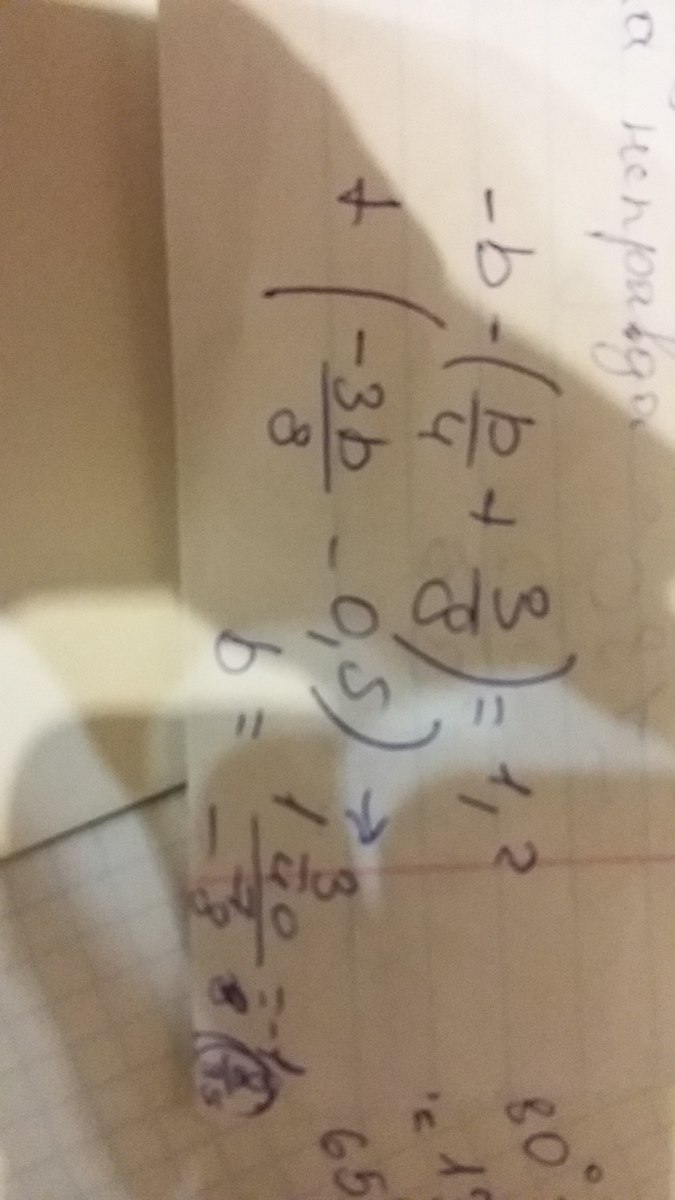 а неправда
-b - (b/4 + 3/8) = 1,2
+ (-3b/8 - 0,5) →
b = 1 3/40 / -7/8 = -1
80°
= 1
65